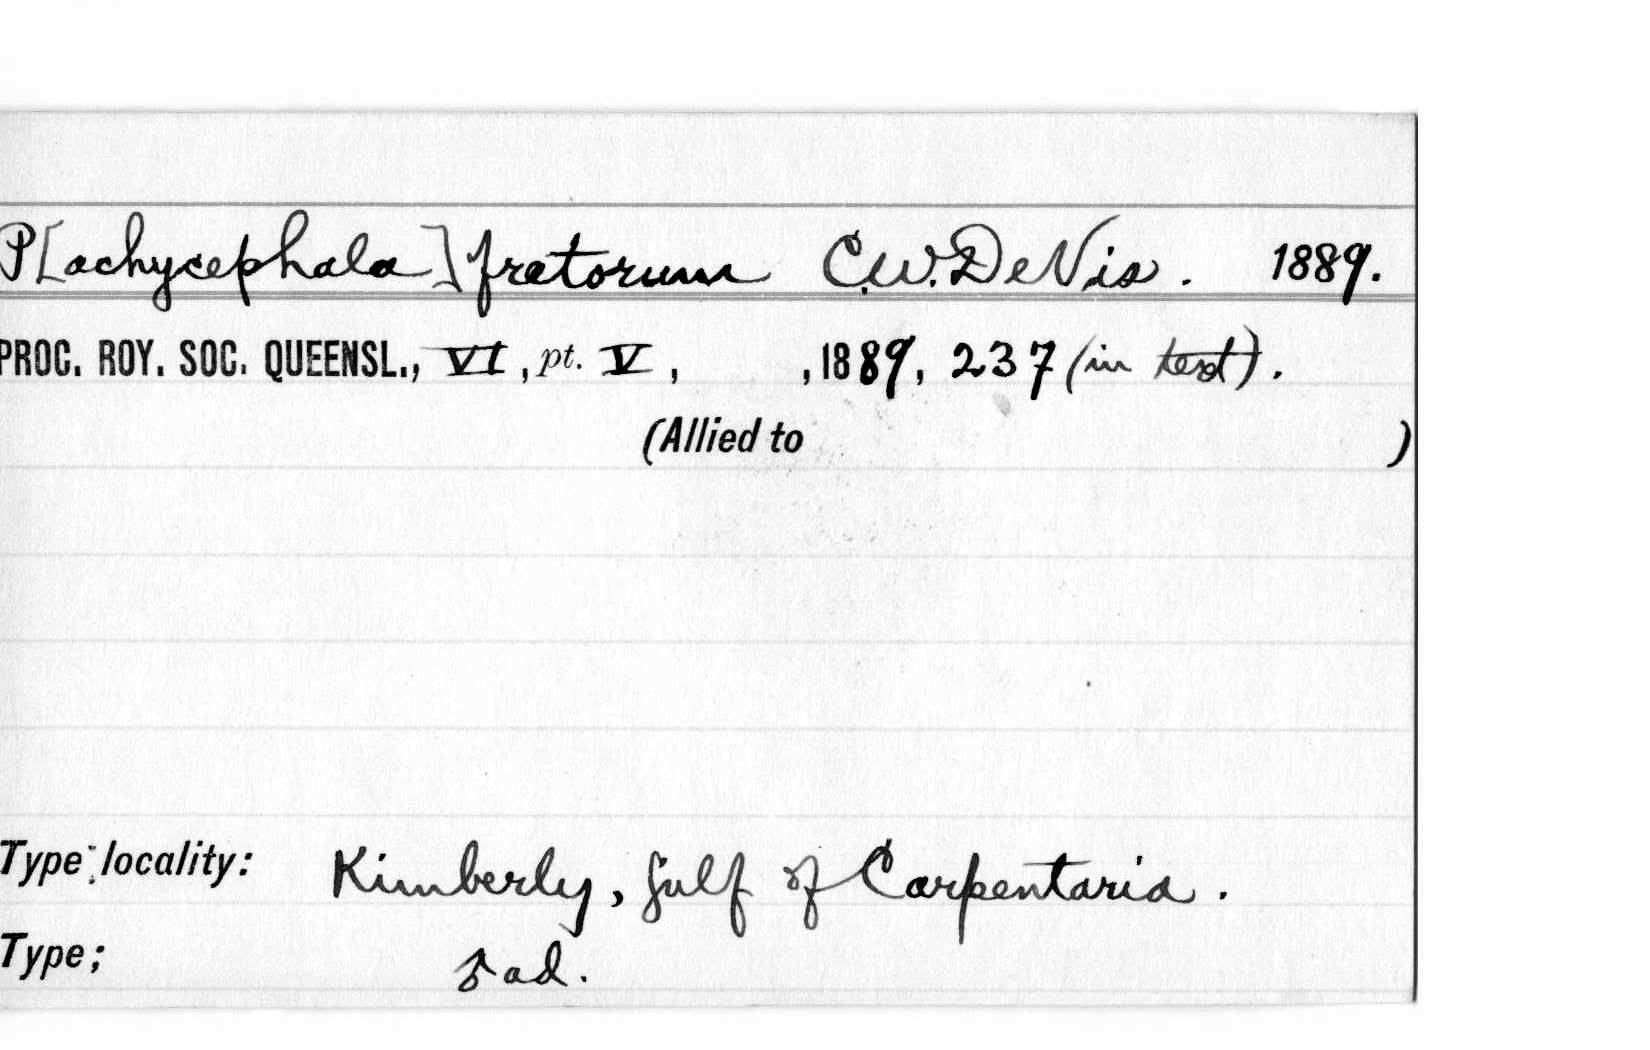 P[achycephala] fretorum C.W. De Vis. 1889.
PROC. ROY. SOC. QUEENSL., VI, pt. V, , 1889, 237 (in text).
(Allied to )
Type locality: Kimberly, Gulf of Carpentaria.
Type; ♂ ad.